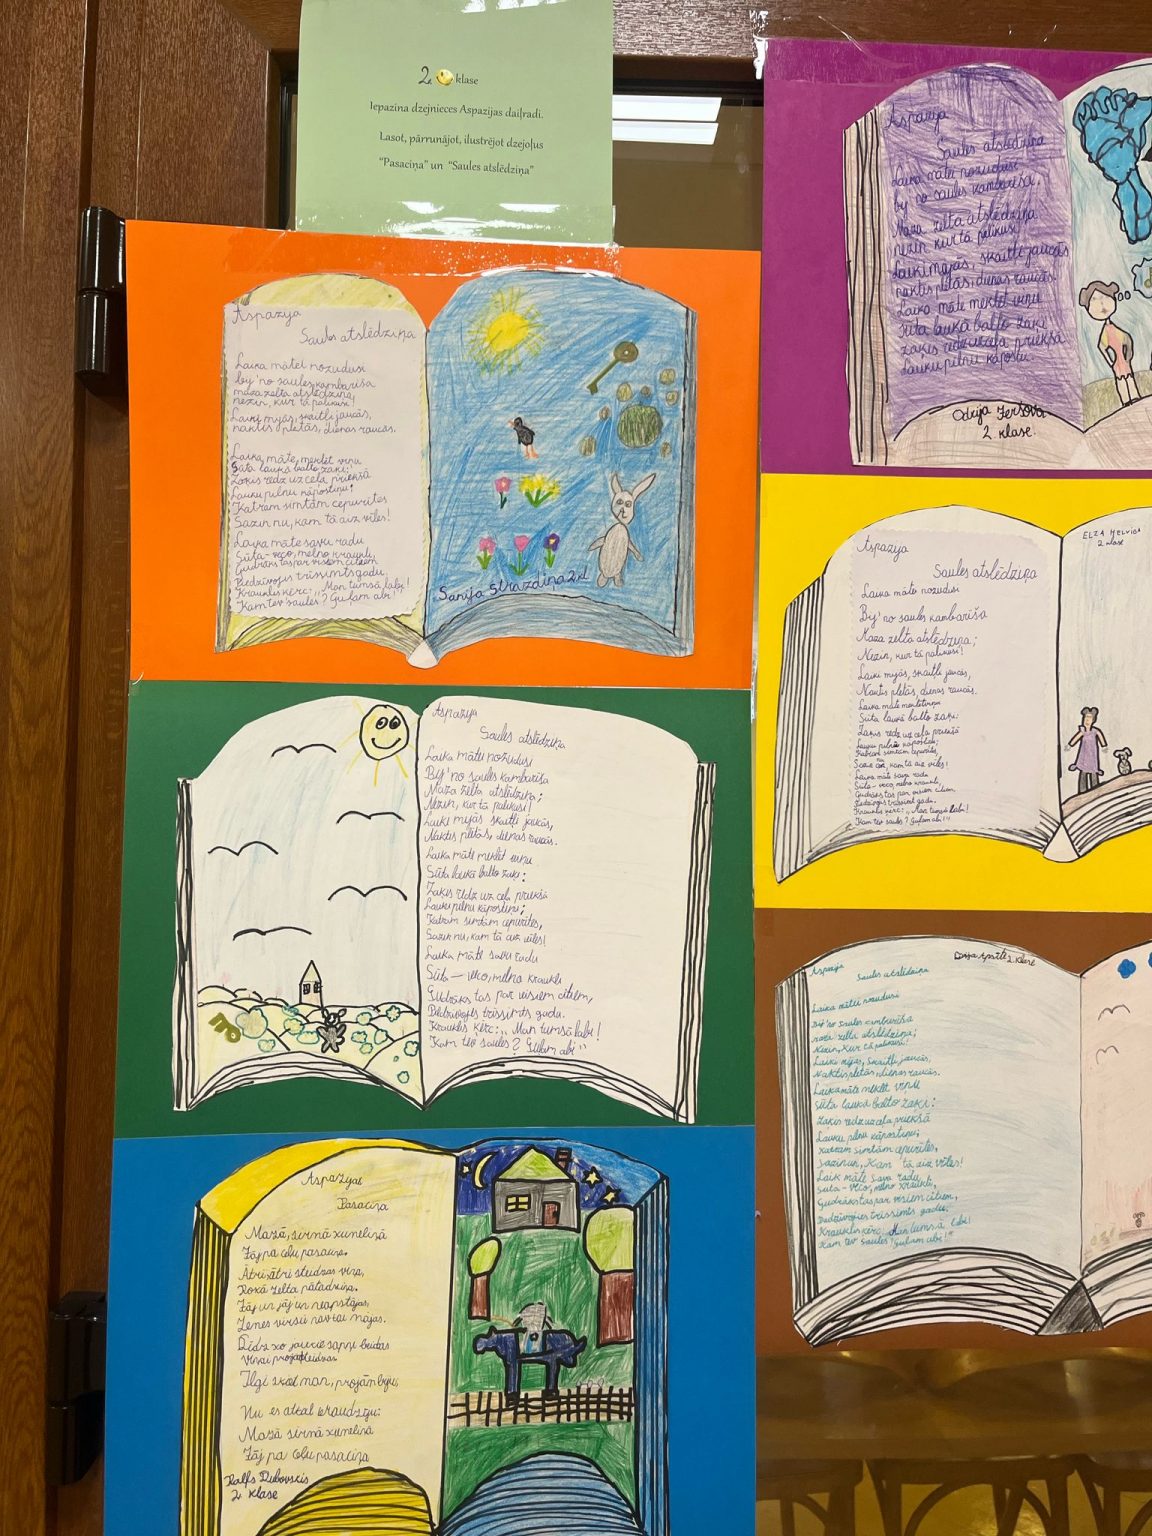 2. klase
Iepazina dzejnieces Aspazijas daiļradi.
Lasot, pārrunājot, ilustrējot dzejoļus
"Pasaciņa" un "Saules atslēdziņa"
Aspazija
Saules atslēdziņa
Laika mātei nozudusi
by no saules kambarīša
Maza zelta atslēdziņa
nezin kur tā palikusi!
Laiki mijās, skaitļi jaucās
naktis plētās, dienas raucās.
Laika māte meklēt viņu
Sūta laukā balto zaķi
zaķis redz uz ceļa priekšā
Lauku pilnu kāpostu.
Odrija
2. klase.
Aspazija
Saules atslēdziņa
Laika mātei nozudusi
by' no saules kambarīša
maza zelta atslēdziņa,
nezin, kur tā palikusi,
Laiki mijās, skaitļi jaucās,
naktis plētās, dienas raucās.
Laika māte, meklēt viņu
Sūta laukā balto zaķi:
Zaķis redz uz ceļa priekšā
Lauku pilnu kāpostiņu;
Katram simtām cepurītes
Sazin nu, kam tā aiz vīles!
Laika māte savu radu
Sūta - veco, melno kraukli,
Gudrāks tas par visiem citiem
Piedzīvojis trīssimts gadu.
Krauklis ķērc: ,,Man tumsā labi!
Kam tev saules? Guļam abi!
Sanija Strazdiņa 2.kl
Aspazija
Saules atslēdziņa
Laika mātei nozudusi
By' no saules kambarīša
Maza zelta atslēdziņa;
Nezin, kur tā palikusi!
Laiki mijās, skaitļi jaucās,
Naktis plētās, dienas raucās.
Laika māte meklēt viņu
Sūta laukā balto zaķi:
Zaķis redz uz ceļa priekšā
Lauku pilnu kāpostiņu;
Katram simtām cepurītes,
Sazin nu, kam tā aiz vīles!
Laika māte savu radu
Sūta - veco, melno kraukli,
Gudrāks tas par visiem citiem,
Piedzīvojis trīssimt gadu.
Krauklis ķērc: ,,Man tumsā labi!
Kam tev saules? Guļam abi!"
ELZA
2. klase
Aspazija
Saules atslēdziņa
Laika mātei nozudusi
By' no saules kambarīša
Maza zelta atslēdziņa;
Nezin, kur tā palikusi!
Laiki mijās, skaitļi jaucās,
Naktis plētās, dienas raucās.
Laika māte meklēt viņu
Sūta laukā balto zaķi:
Zaķis redz uz ceļa priekšā
Lauku pilnu kāpostiņu;
Katram simtām cepurītes,
Sazin nu, kam tā aiz vīles!
Laika māte savu radu
Sūta — veco, melno kraukli
Gudrāks tas par visiem citiem,
Piedzīvojis trīssimts gadu.
Krauklis ķērc: ,,Man tumsā labi!
Kam tev saules? Guļam abi"
2. klase
Aspazija
Saules atslēdziņa
Laika mātei nozudusi
By' no saules kambarīša
zelta atslēdziņa;
Nezin, kur tā palikusi!
Laiki mijās, skaitļi jaucās,
Naktis plētās, dienas raucās.
Laika māte meklēt viņu
Sūta laukā balto zaķi:
Zaķis redz uz ceļa priekšā
Lauku pilnu kāpostiņu;
Katram simtām cepurītes,
Sazin nu, kam tā aiz vīles!
Laik māte sava radu,
Sūta - veco, melno kraukli,
Gudrāks tas par visiem citiem,
trīssimts gadu.
Krauklis ķērc: ,,Man tumsā labi!
Kam tev saules? Guļam abi!"
Aspazijas
Pasaciņa
Mazā, sirmā kumeliņā
Jāj pa ceļu pasaciņa.
Ātri, ātri steidzas viņa,
Rokā zelta pātadziņa.
Jāj un jāj un neapstājas,
Zemes virsū nav tai mājas.
Līdz ko jaucie sapņi beidzas
Viņai projām
Ilgi skat man, projām bijis,
Nu es atkal ieraudzīju:
Mazā sirmā kumeliņā
Jāj pa ceļu pasaciņa
Ralfs Dubovskis
2. klase